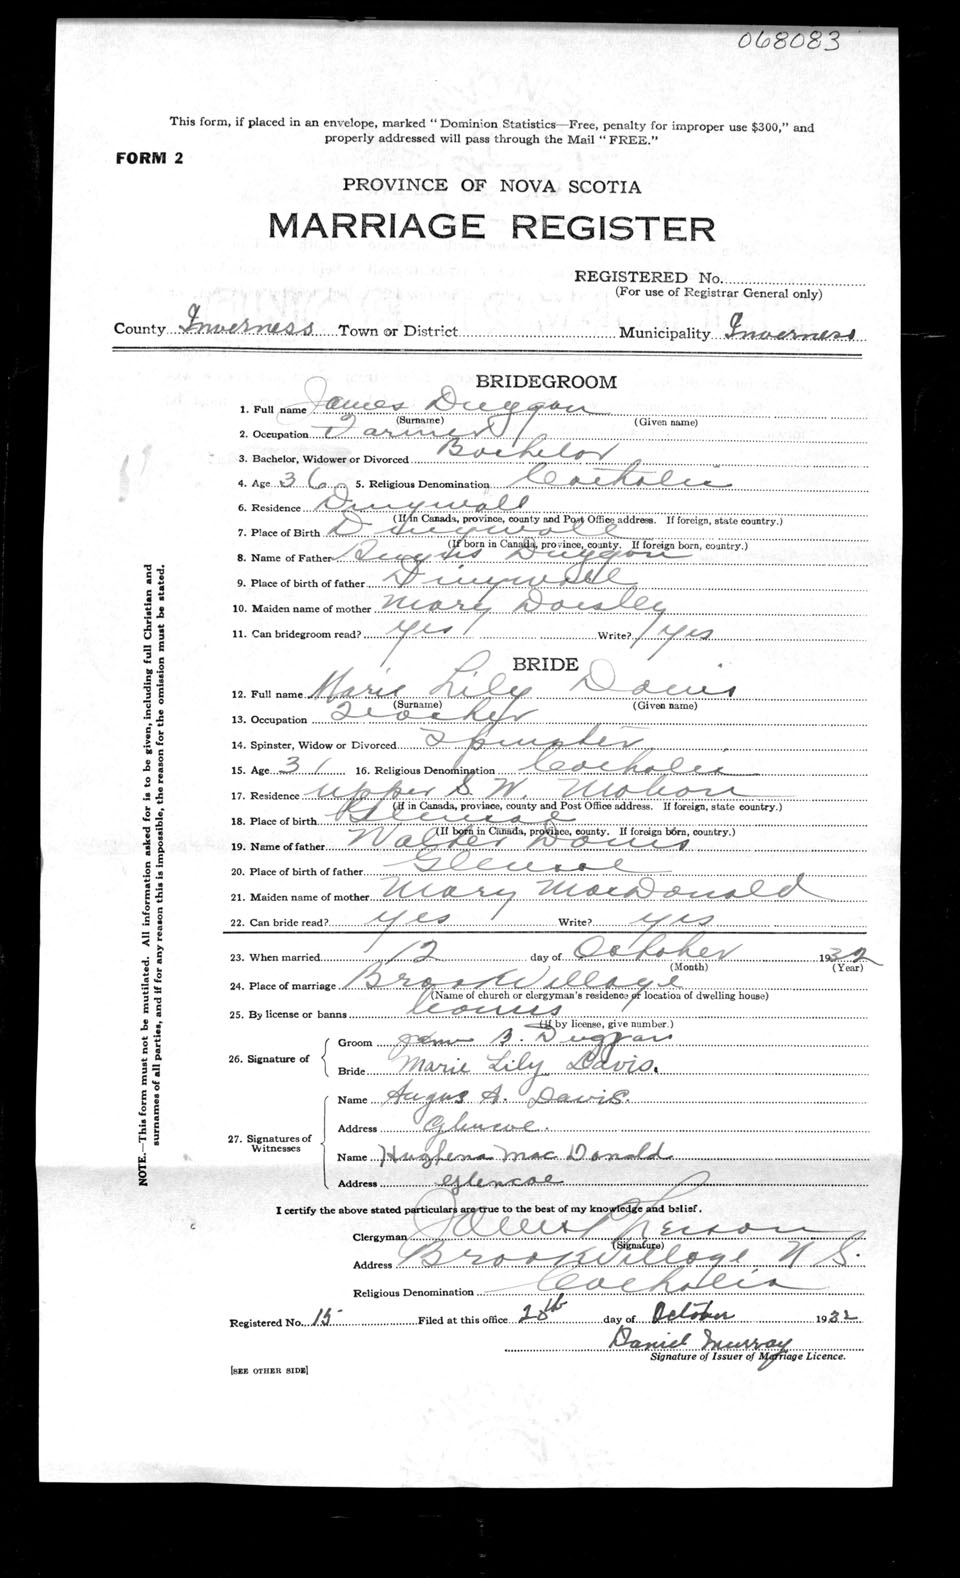 068083
This form, if placed in an envelope, marked "Dominion Statistics—Free, penalty for improper use $300," and
properly addressed will pass through the Mail "FREE."
FORM 2
PROVINCE OF NOVA SCOTIA
MARRIAGE REGISTER
REGISTERED No.
(For use of Registrar General only)
County Inverness Town or District Municipality Inverness
BRIDEGROOM
1. Full name James Duggan
(Surname) (Given name)
2. Occupation Farmer
3. Bachelor, Widower or Divorced Bachelor
4. Age 36 5. Religious Denomination Catholic
6. Residence Dingwall
(If in Canada, province, county and Post Office address. If foreign, state country.)
7. Place of Birth Dingwall
(If born in Canada, province, county. If foreign born, country.)
8. Name of Father Duggan
9. Place of birth of father Dingwall
10. Maiden name of mother Mary
11. Can bridegroom read? yes Write? yes
BRIDE
12. Full name Marie Lily Davis
(Surname) (Given name)
13. Occupation Teacher
14. Spinster, Widow or Divorced Spinster
15. Age 31 16. Religious Denomination Catholic
17. Residence Upper S. W. Mabou
(If in Canada, province, county and Post Office address. If foreign, state country.)
18. Place of birth Glencoe
(If born in Canada, province, county. If foreign born, country.)
19. Name of father Walter Davis
20. Place of birth of father Glencoe
21. Maiden name of mother Mary MacDonald
22. Can bride read? yes Write? yes
23. When married 12 day of October 1932
(Month) (Year)
24. Place of marriage Brook Village
(Name of church or clergyman's residence or location of dwelling house)
25. By license or banns
(If by license, give number.)
26. Signature of
Groom James B. Duggan
Bride Marie Lily Davis.
27. Signatures of Witnesses
Name Angus A. Davis.
Address Glencoe.
Name Hughena Mac Donald
Address Glencoe
I certify the above stated particulars are true to the best of my knowledge and belief.
Clergyman
(Signature)
Address Brook Village N S.
Religious Denomination Catholic
Registered No. 15 Filed at this office 28th day of October 1932
Daniel Murray
Signature of Issuer of Marriage Licence.
[SEE OTHER SIDE]
NOTE.—This form must not be mutilated. All information asked for is to be given, including full Christian and
surnames of all parties, and if for any reason this is impossible, the reason for the omission must be stated.